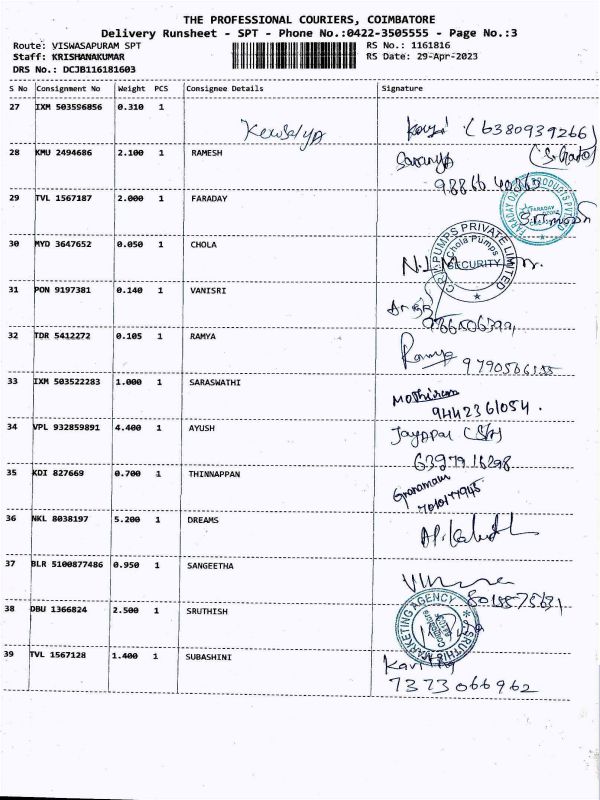 THE PROFESSIONAL COURIERS, COIMBATORE
Delivery Runsheet - SPT - Phone No.:0422-3505555 - Page No.:3
Route: VISWASAPURAM SPT RS No.: 1161816
Staff: KRISHANAKUMAR RS Date: 29-Apr-2023
DRS No.: DCJB116181603
S No Consignment No Weight PCS Consignee Details Signature
27 IXM 503596856 0.310 1
Kewsalya (6380939266)
28 KMU 2494686 2.100 1 RAMESH Saranya
29 TVL 1567187 2.000 1 FARADAY
FARADAY
30 MYD 3647652 0.050 1 CHOLA
PUMPS PRIVATE LIMITED
Chola Pumps
SECURITY
31 PON 9197381 0.140 1 VANISRI
32 TDR 5412272 0.105 1 RAMYA Ramya
33 IXM 503522283 1.000 1 SARASWATHI
9442361054.
34 VPL 932859891 4.400 1 AYUSH
35 KDI 827669 0.700 1 THINNAPPAN
36 NKL 8038197 5.200 1 DREAMS
37 BLR 5100877486 0.950 1 SANGEETHA
38 DBU 1366824 2.500 1 SRUTHISH
SRUTHISH MARKETING AGENCY
39 TVL 1567128 1.400 1 SUBASHINI
7373066962